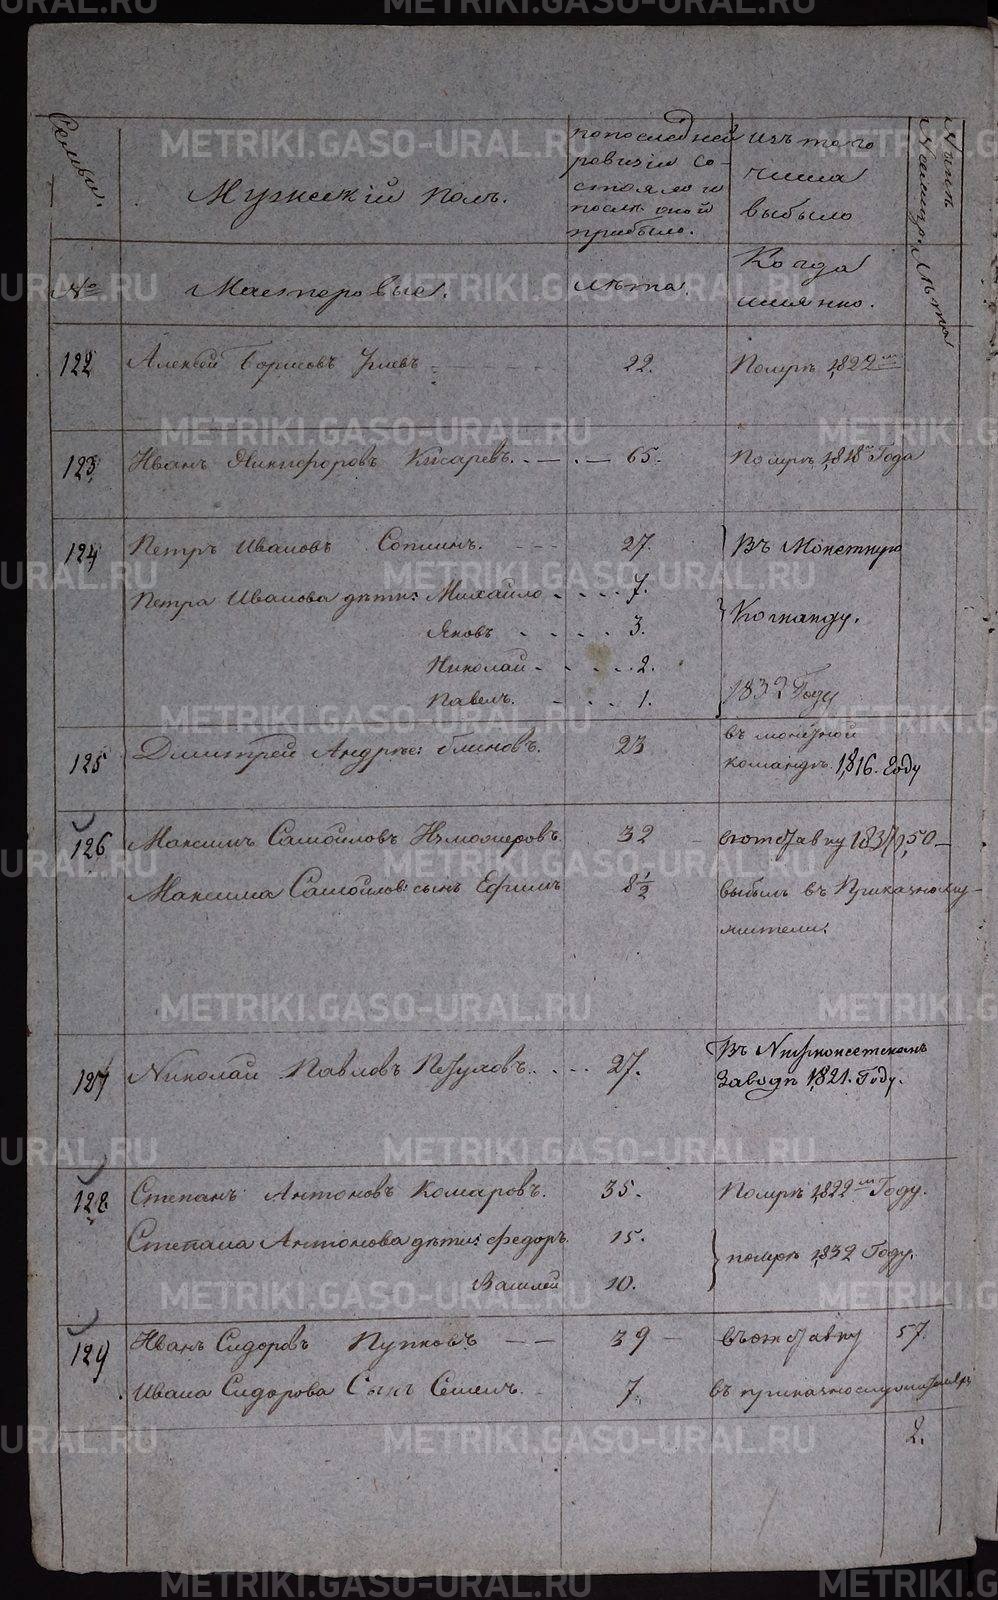 METRIKI.GASO-URAL.RU
Семьи.
Мужескій полъ.
попоследней
ревизіи со-
стояло и
после оной
прибыло.
изъ того
числа
выбыло
Нынѣ
лѣта
№
Мастеровые.
лѣта.
Когда
имянно.
122
Алексѣй Борисовъ
22.
Помръ 1822го
123
Иванъ Никифоровъ Кисаревъ.
65.
Помръ 1818го Года
124
Петръ Ивановъ Сопинъ.
27.
Въ Монетную
Петра Иванова дѣти: Михайло
7.
Команду.
Яковъ
3.
Николай
2.
1832 Году
Павелъ.
1.
125
Дмитрей Андрѣе: блиновъ.
23
въ монетной
командѣ. 1816. Году
126
Максимъ Самойловъ Измоперовъ
32
вотставку 1837
50
Максима Самойлов: сынъ Ефимъ
8 1/2
выбылъ въ Приказнослу-
жители.
127
Николай Павловъ Петуховъ.
27.
Въ Нижнеисетскомъ
Заводѣ 1821. Году.
128
Степанъ Антоновъ Комаровъ.
35.
Помръ 1822го Году.
Степана Антонова дѣти: Федоръ
15.
помрѣ 1832 Году.
Василей
10.
129
Иванъ Сидоровъ Пупковъ
39
въотставку
57.
Ивана Сидорова Сынъ Семенъ.
7.
въ приказнослужителяхъ
2.